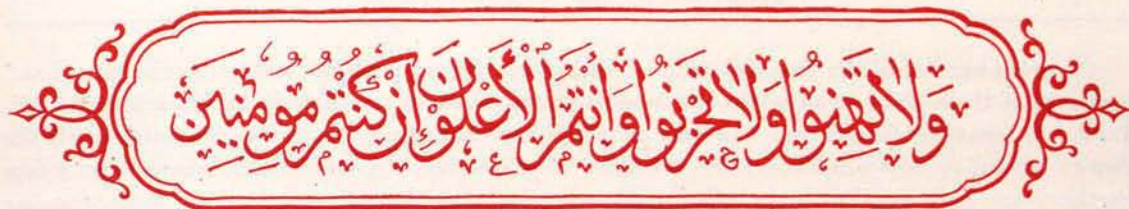 وَلَا تَهِنُوا وَلَا تَحْزَنُوا وَأَنْتُمُ الْأَعْلَوْنَ إِنْ كُنْتُمْ مُؤْمِنِينَ